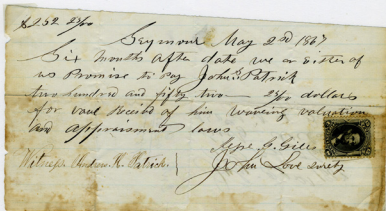 $252 25/100
Seymour May 2nd 1867
Six months after date we or Either of
us Promise to Pay John Patrick
two hundred and fifty two 25/100 dollars
for value Received of him waiving valuation
and appraisment laws
Jesse J. Giles
Witness Andrew H. Patrick
John Love surety